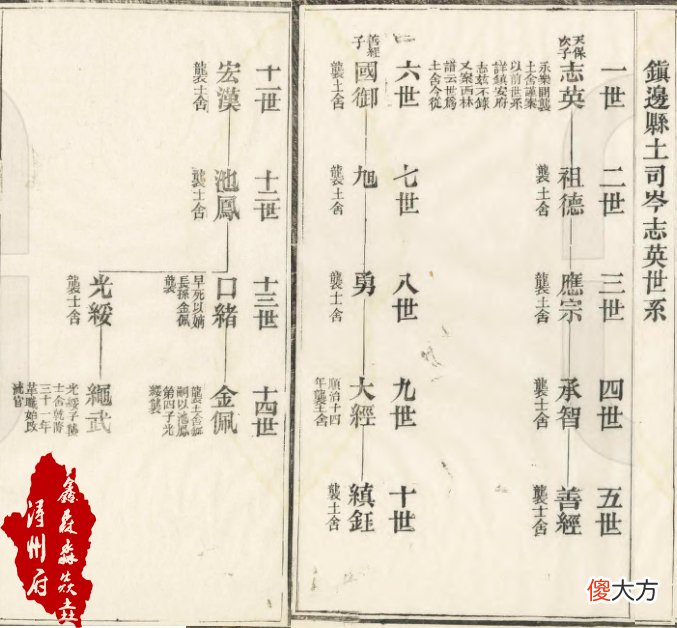 鎮邊縣土司岑志英世系
一世
天保
次子
志英
承樂閒襲
土舍謹案
以前世系
詳鎮安府
志茲不錄
又案西林
譜云世爲
土舍今從
二世
祖德
襲土舍
三世
應宗
襲土舍
四世
承智
襲土舍
五世
善經
襲土舍
六世
善經
子
國御
襲土舍
七世
旭
襲土舍
八世
勇
襲土舍
九世
大經
順治十四
年襲土舍
十世
縝鈺
襲土舍
十一世
宏漢
襲土舍
十二世
池鳳
襲土舍
十三世
口緒
早死以嫡
長孫金佩
襲
光綏
襲土舍
十四世
金佩
襲土舍無
嗣以池鳳
第四子光
綏襲
繩武
光綏子襲
土舍乾隆
三十一年
革職始改
流官
潯州府
傻大方